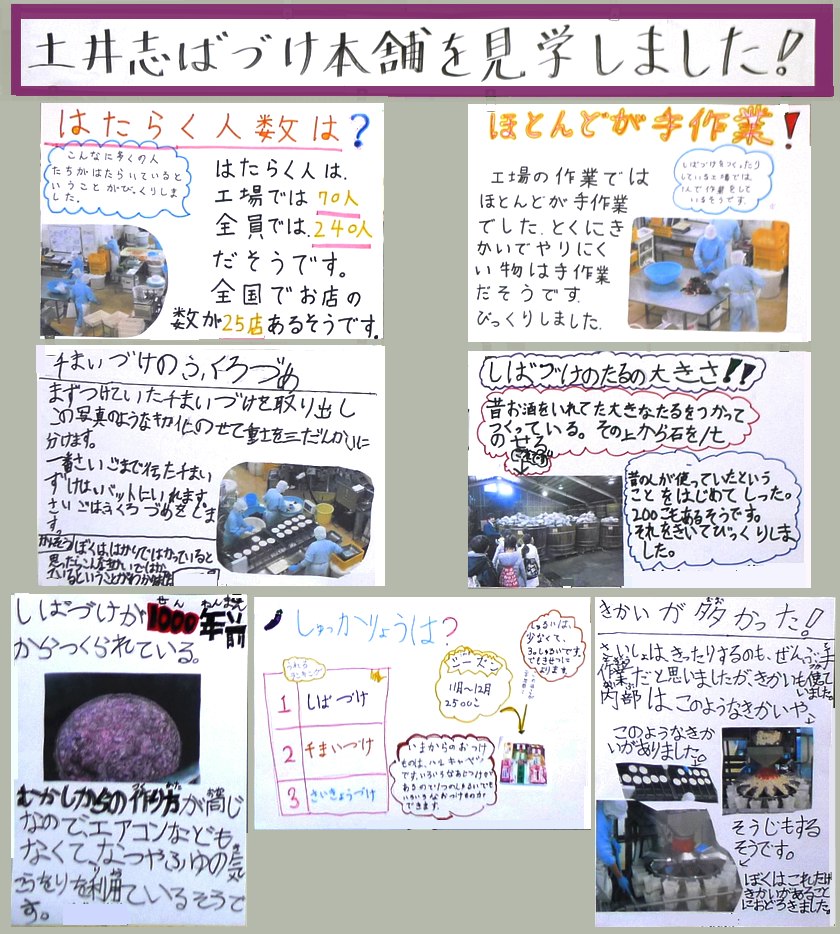 土井志ばづけ本舗を見学しました!
はたらく人数は?
こんなに多くの人
たちがはたらいているとい
うことがびっくりしま
した。
はたらく人は、
工場では70人
全員では、240人
だそうです。
全国でお店の
数が25店あるそうです。
ほとんどが手作業!
しばづけをつくったり
している工場では、
1人で作業をして
いるそうです。
工場の作業では
ほとんどが手作業
でした。とくにき
かいでやりにく
い物は手作業
だそうです。
びっくりしました。
千まいづけのふくろづめ
まずつけていた千まいづけを取り出し
この写真のような
のせて重さを三だんかいに
分けます。
千まい
ずけはバットにいれます。
さいごはふくろづめをしま
す。
かんそう ぼくは、はかりではかっていると
しばづけのたるの大きさ!!
昔お酒をいれてた大きなたるをつかって
つくっている。その上から石を
のせる
昔の人が使っていたという
ことをはじめてしった。
200こもあるそうです。
それをきいてびっくりしま
した。
しばづけが1000年前
せん ねんまえ
からつくられている。
むかしからの作り方が同じ
なので、エアコンなども
なくて、なつやふゆの気
こうをりを利用しているそうで
す。
しゅっかりょうは?
うれる
ランキング
1 しばづけ
2 千まいづけ
3 さいきょうづけ
シーズン
11月~12月
2500こ
しゅるいは、
少なくて、
3しゅるいです。
いまからのおつけ
ものは、ハルキャベツ
です。いろいろなあじつけが
できます。
きかいが多かった!
おお
さいしょは、きったりするのも、ぜんぶ手
作業だと思いましたがきかいも使って
いました。
内部は、このようなきかいや、
このようなきか
いがありました。
そうじもする
そうです。
ぼくはこれだけ
きかいがあること
におどろきました。